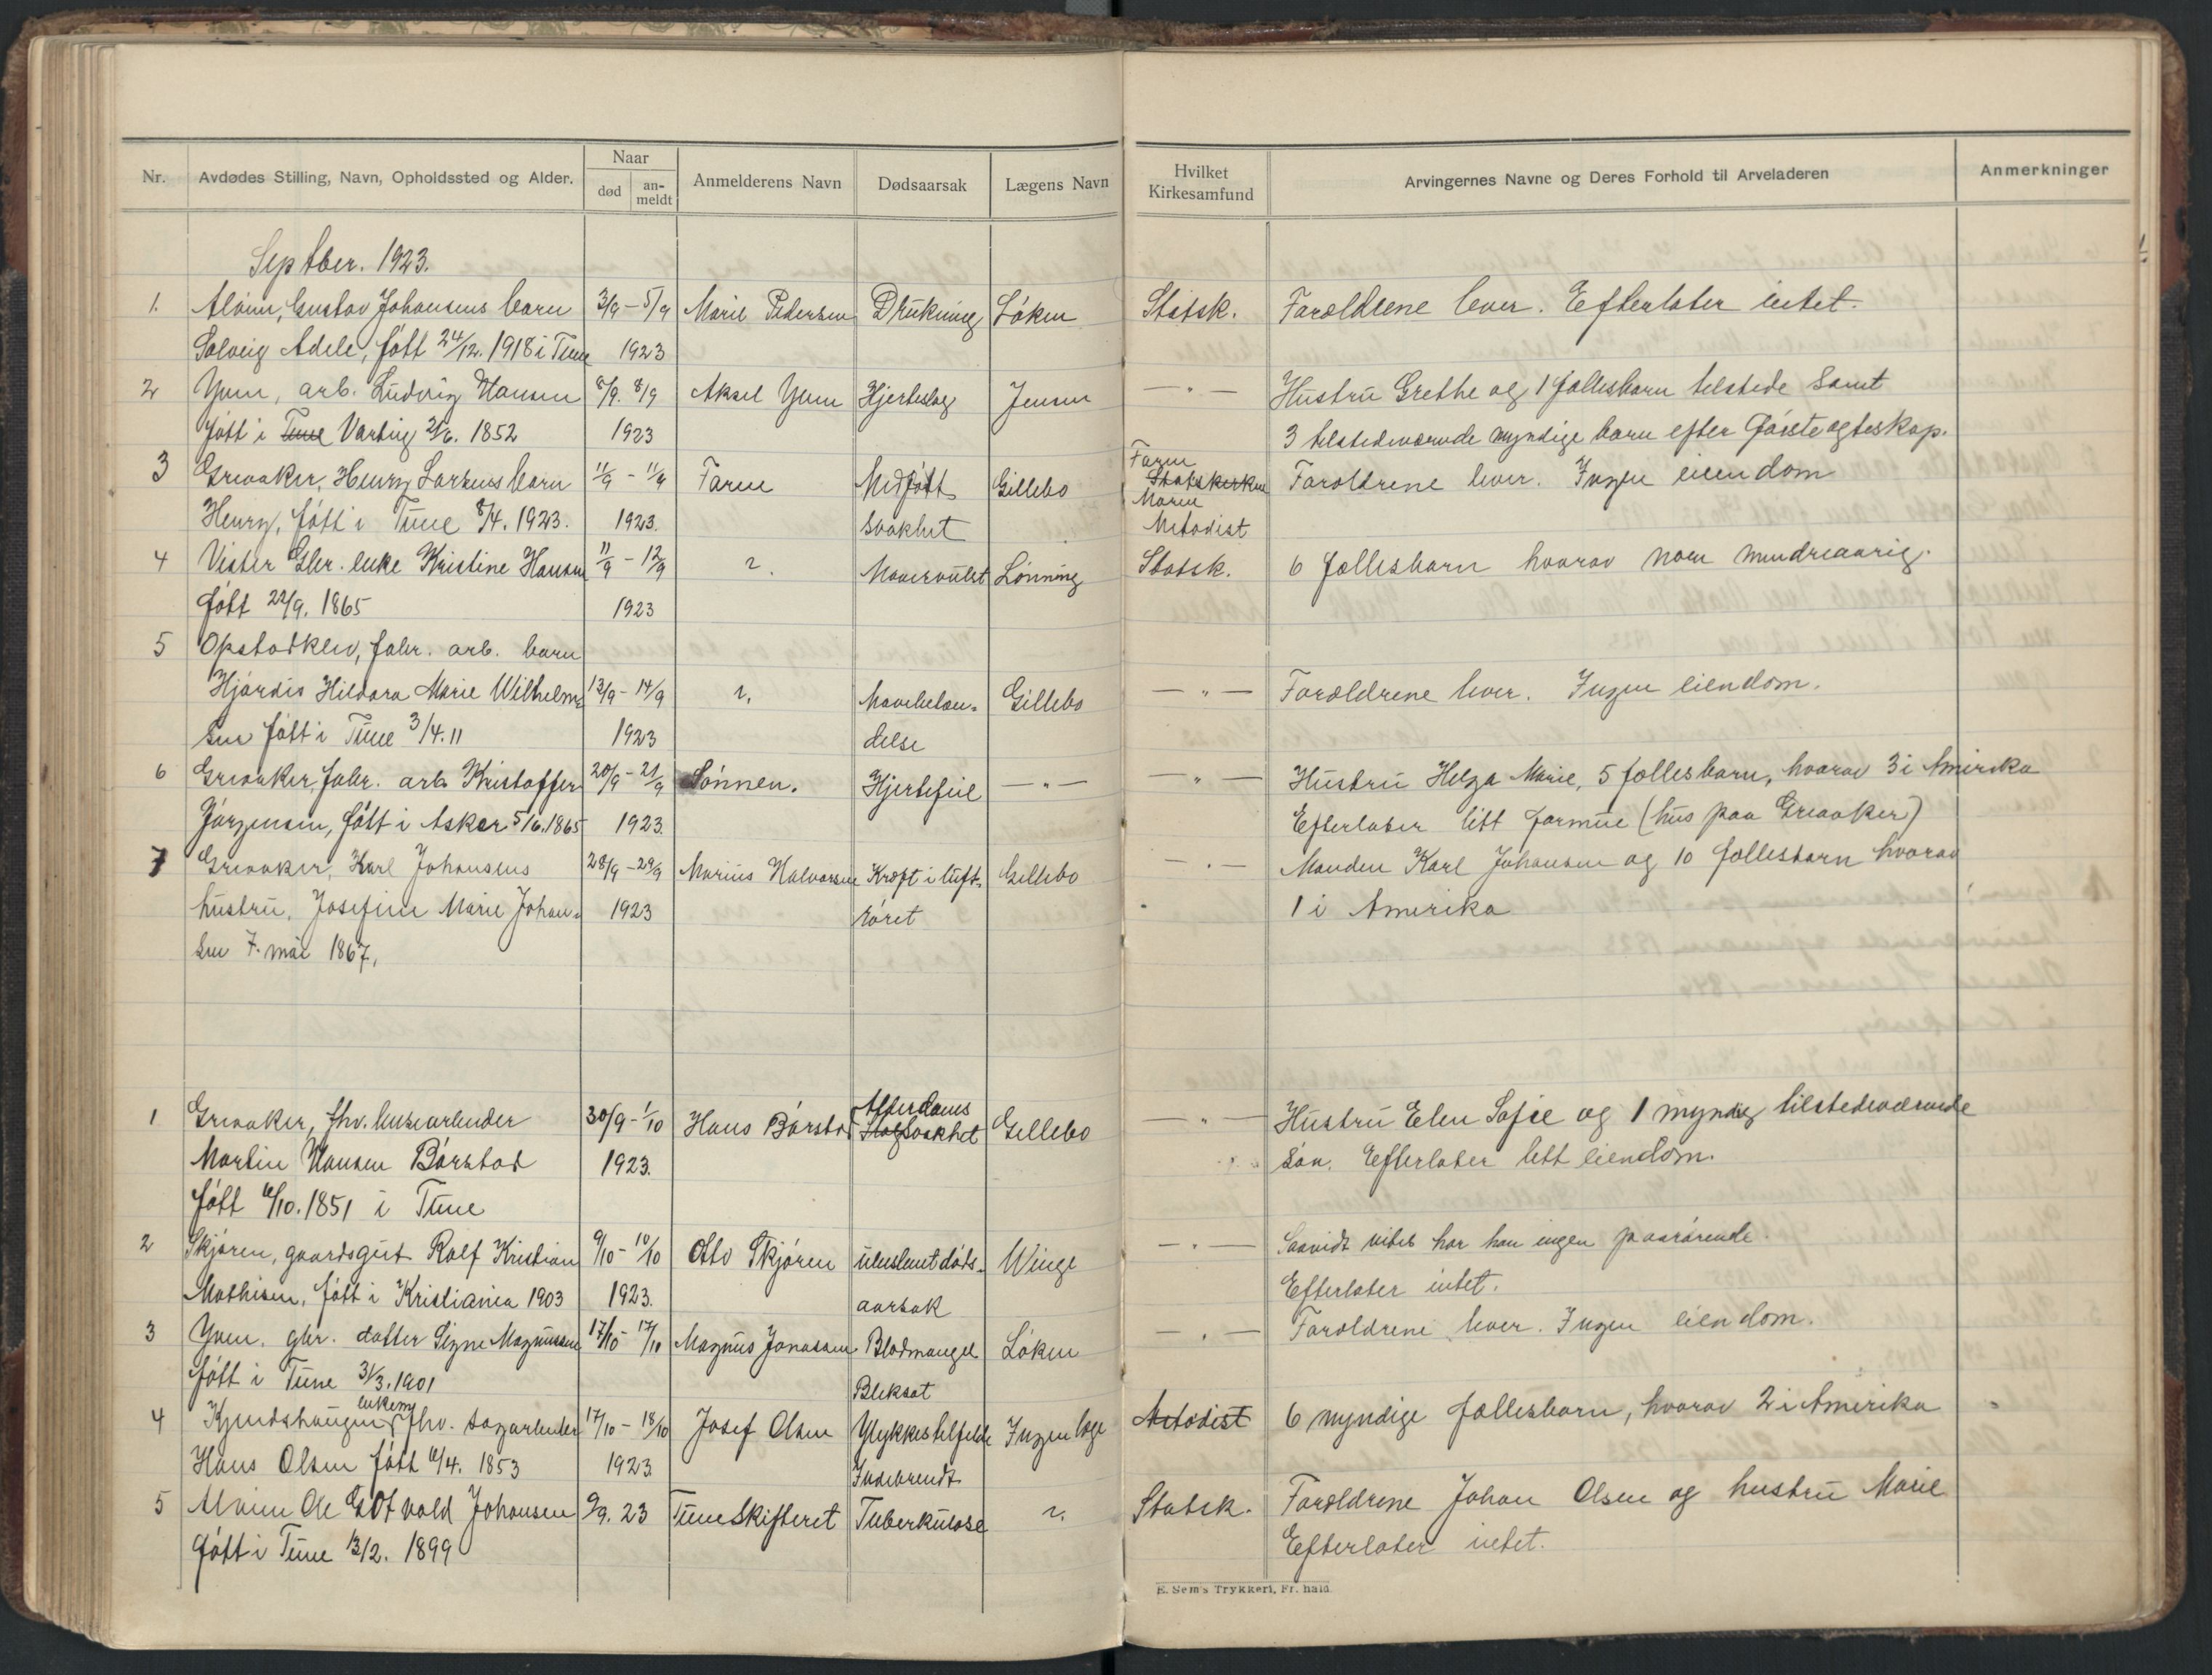 Nr. Avdødes Stilling, Navn, Opholdssted og Alder. Naar død an-meldt Anmelderens Navn Dødsaarsak Lægens Navn Hvilket Kirkesamfund Arvingernes Navne og Deres Forhold til Arveladeren Anmerkninger
Septber. 1923.
1. Alvim, Gustav Johansens barn 3/9 – 5/9 Marie Pedersen Drukning Løken Statsk. Forældrene lever. Efterlater intet.
Solveig Adele, født 24/12. 1918 i Tune 1923
2 Yven, arb. Ludvig Hansen 8/9. 8/9 Aksel Yven Hjerteslag Jensen — " — Hustru Grethe og 1 fællesbarn tilstede samt
født i Tune Varteig 21/6. 1852 1923 3 tilstedeværende myndige barn efter første egteskap.
3 Greaaker, Henry Larsens barn 11/9 – 11/9 Faren Medfødt Gillebo Faren Statskirken Foreldrene lever. Ingen eiendom
Henry, født i Tune 8/4. 1923. 1923. svakhet Moren Metodist
4 Vister Gbr. enke Kristine Hansen 11/9 – 12/9 ?. Mavesvulst Lønning Statsk. 6 fællesbarn hvorav noen mindreaarig.
født 22/9. 1865 1923
5 Opstadklev, fabr. arb. barn
Hjørdis Hildora Marie Wilhelm- 13/9 – 14/9 ?. Mavebetæn- Gillebo — " — Forældrene lever. Ingen eiendom.
sen født i Tune 3/4. 11 1923 delse
6 Greaaker, fabr. arb. Kristoffer 20/9 – 21/9 Sønnen. Hjertefeil — " — — " — Hustru Helga Marie, 5 fællesbarn, hvorav 3 i Amerika
Jørgensen, født i Asker 5/6. 1865 1923. Efterlater litt formue (hus paa Greaaker)
7 Greaaker, Karl Johansens 28/9 – 29/9 Marius Halvorsen Kræft i luft- Gillebo — " — Manden Karl Johansen og 10 fællesbarn hvorav
hustru, Josefine Marie Johan- 1923 røret 1 i Amerika
sen 7. mai 1867.
1 Greaaker, fhv. bruksarbeider 30/9 – 1/10 Hans Børstad Alderdoms svakhet Gillebo — " — Hustru Elen Sofie og 1 myndig tilstedeværende
Martin Hansen Børstad 1923. søn. Efterlater litt eiendom.
født 6/10. 1851 i Tune
2 Skjøren, gaardsgut Rolf Kristian 9/10 – 10/10 Otto Skjøren ubestemt døds- Winge — " — Saavidt vites har han ingen paarørende.
Mathisen, født i Kristiania 1903 1923. aarsak Efterlater intet.
3 Yven. gbr. datter Signe Magnussen 17/10 – 17/10 Magnus Jonassen Blodmangel Løken — " — Foreldrene lever. Ingen eiendom.
født i Tune 31/3. 1901 Bleksot
4 Kjendshaugen, enkem. fhv. sagarbeider 17/10 – 18/10 Josef Olsen Ulykkestilfelde Ingen læge Metodist 6 myndige fællesbarn, hvorav 2 i Amerika
Hans Olsen født 6/4. 1853 1923 Indebrendt
5 Alvim Ole Gotvald Johansen 9/9. 23 Tune Skifteret Tuberkulose ?. Statsk. Forældrene Johan Olsen og hustru Marie
født i Tune 13/2. 1899 Efterlater intet.
E. Sem's Trykkeri, Fr. hald